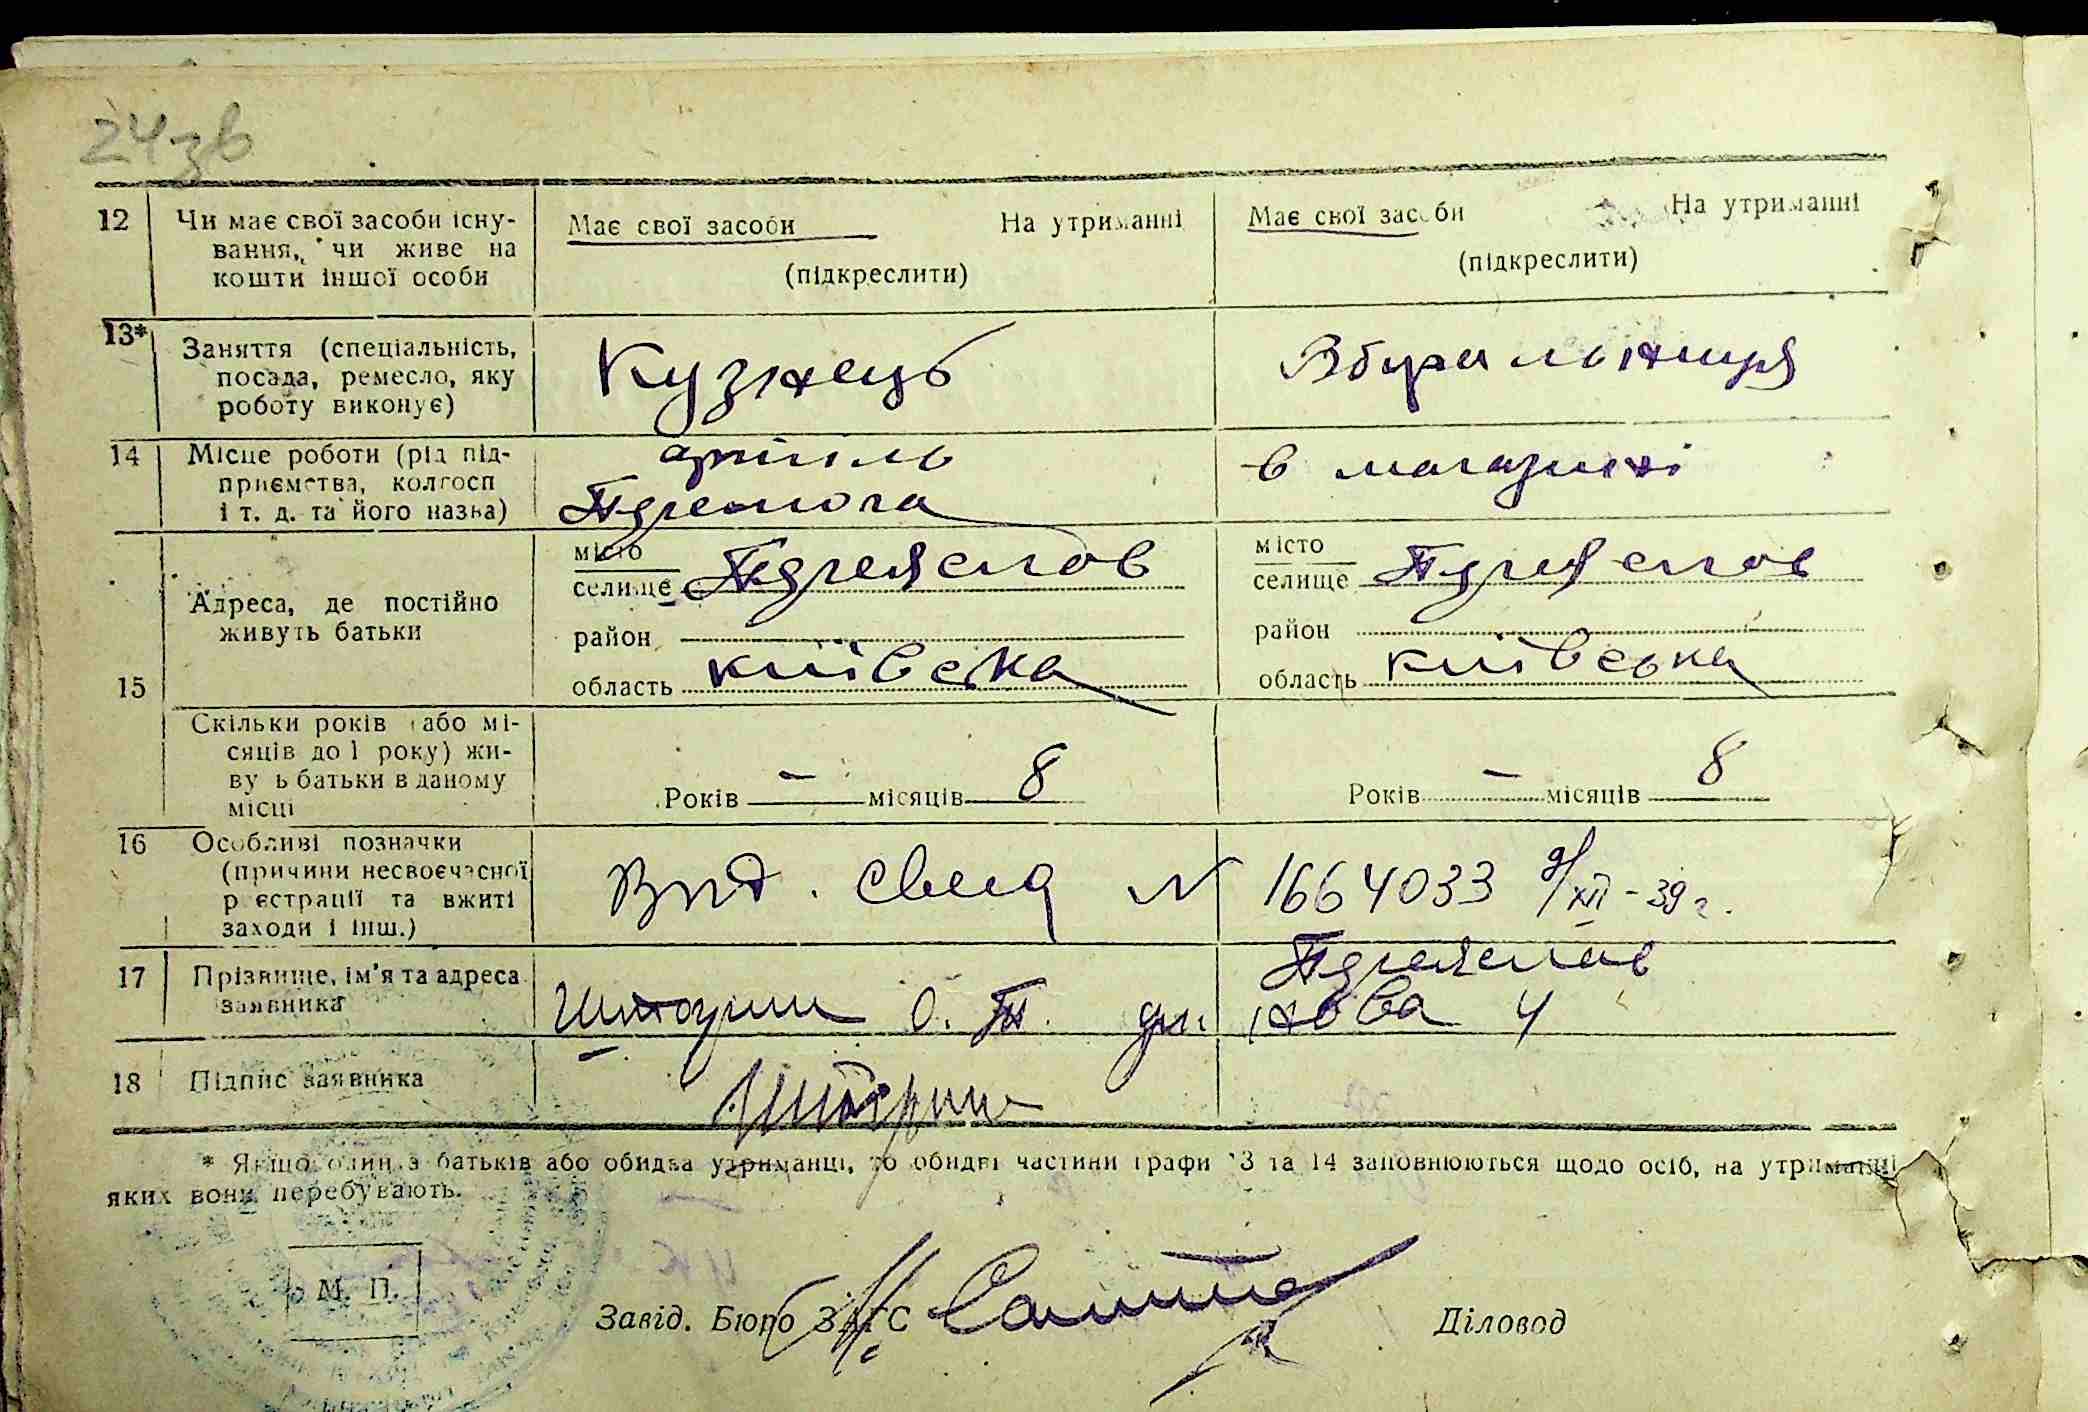 24зв
12 Чи має свої засоби існу-
вання, чи живе на
кошти іншої особи
Має свої засоби На утриманні
(підкреслити)
Має свої засоби На утриманні
(підкреслити)
13* Заняття (спеціальність,
посада, ремесло, яку
роботу виконує)
Кузнець
Вбиральниця
14 Місце роботи (рід під-
приємства, колгосп
і т. д. та його назва)
артіль
Перемога
в магазині
15 Адреса, де постійно
живуть батьки
місто
селище
район
область Київська
місто
селище
район
область Київська
Скільки років (або мі-
сяців до 1 року) жи-
вуть батьки в даному
місці
Років — місяців 8
Років — місяців 8
16 Особливі позначки
(причини несвоєчасної
реєстрації та вжиті
заходи і інш.)
Вид. свид N 1664033 9/XII-39 г.
17 Прізвище, ім'я та адреса
заявника
О. П. 4
18 Підпис заявника
* Якщо один з батьків або обидва утриманці, то обидві частини графи 13 та 14 заповнюються щодо осіб, на утриманні
яких вони перебувають.
М. П.
Завід. Бюро ЗАГС
Діловод